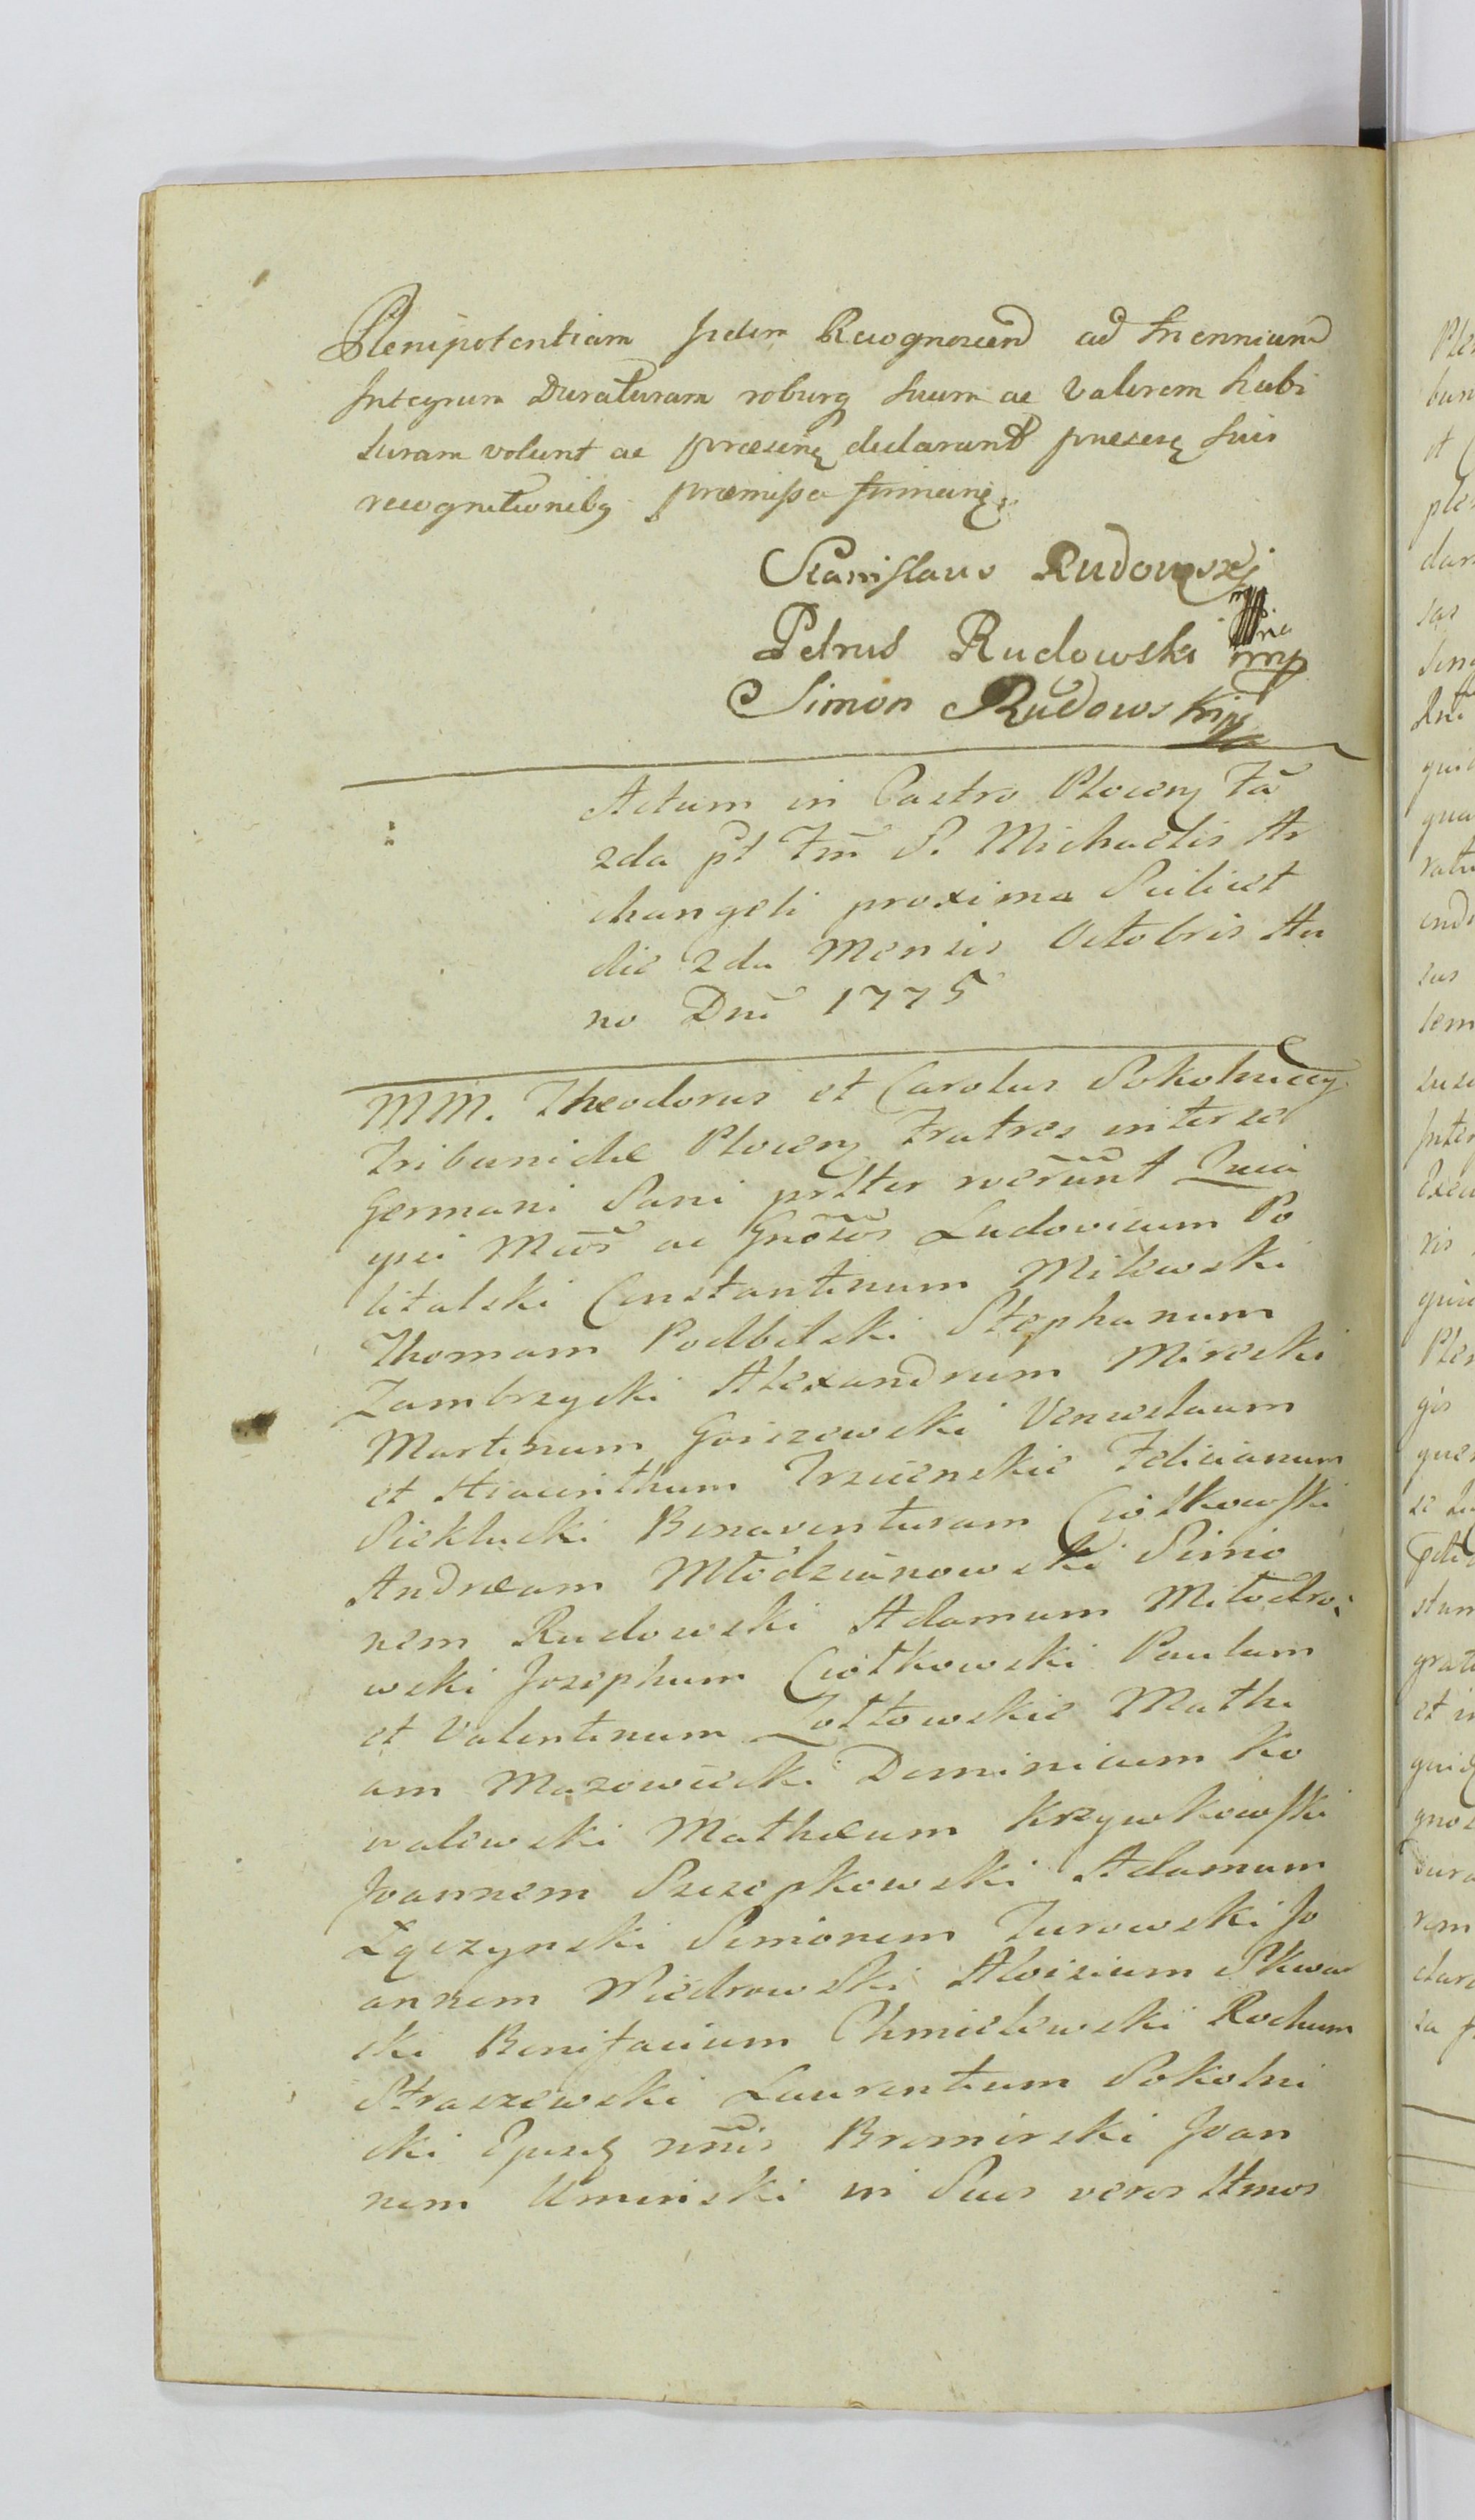 Plenipotentiam Iidem Recognoscend ad triennium
Integrum Duraturam roburq suum ac Valorem habi
turam volunt ac præsenę declarant præsenę suis
recognitionibq præmissa
Stanislaus Rudowskj
mpp
Petrus Rudowski mp
Simon Rudowski mp
Actum in Castro Plocenę Fã
2da pt Fm̃ S. Michaelis Ar
changeli proxima Scilicet
die 2da Mensis Octobris An
no Dnĩ 1775
MM. Theodorus et Carolus Sokolniccy
Tribunidæ Plocenę Fratres inter se
Germani Sani prltr rcerũnt Quia
ipsi Mcos̃ ac Gnõsos Ludovicum Po
litalski Constantinum Milewski
Thomam Podbilski Stephanum
Zambrzycki Alexandrum Mirecki
Martinum Gorczewski Venceslaum
et Hiacinthum Trzcienskie Felicianum
Siekłucki Bonaventuram Ciołkowski
Andream Młodzianowski Simo
nem Rudowski Adamum Miłodro,
wski Josephum Ciołkowski Paulum
et Valentinum Żołtowskie Mathi
am Mazowiecki Dominicum Ko
walewski Mathæum Krzywkowski
Joannem Szczepkowski Adamum
Łączynski Simonem Turowski Jo
annem Niedrowski Aloisium Skwar
ski Bonifacium Chmielewski Rochum
Straszewski Laurentium Sokolni
cki nnis̃ Bromirski Joan
nem Uminski in Suos veros Ltmos